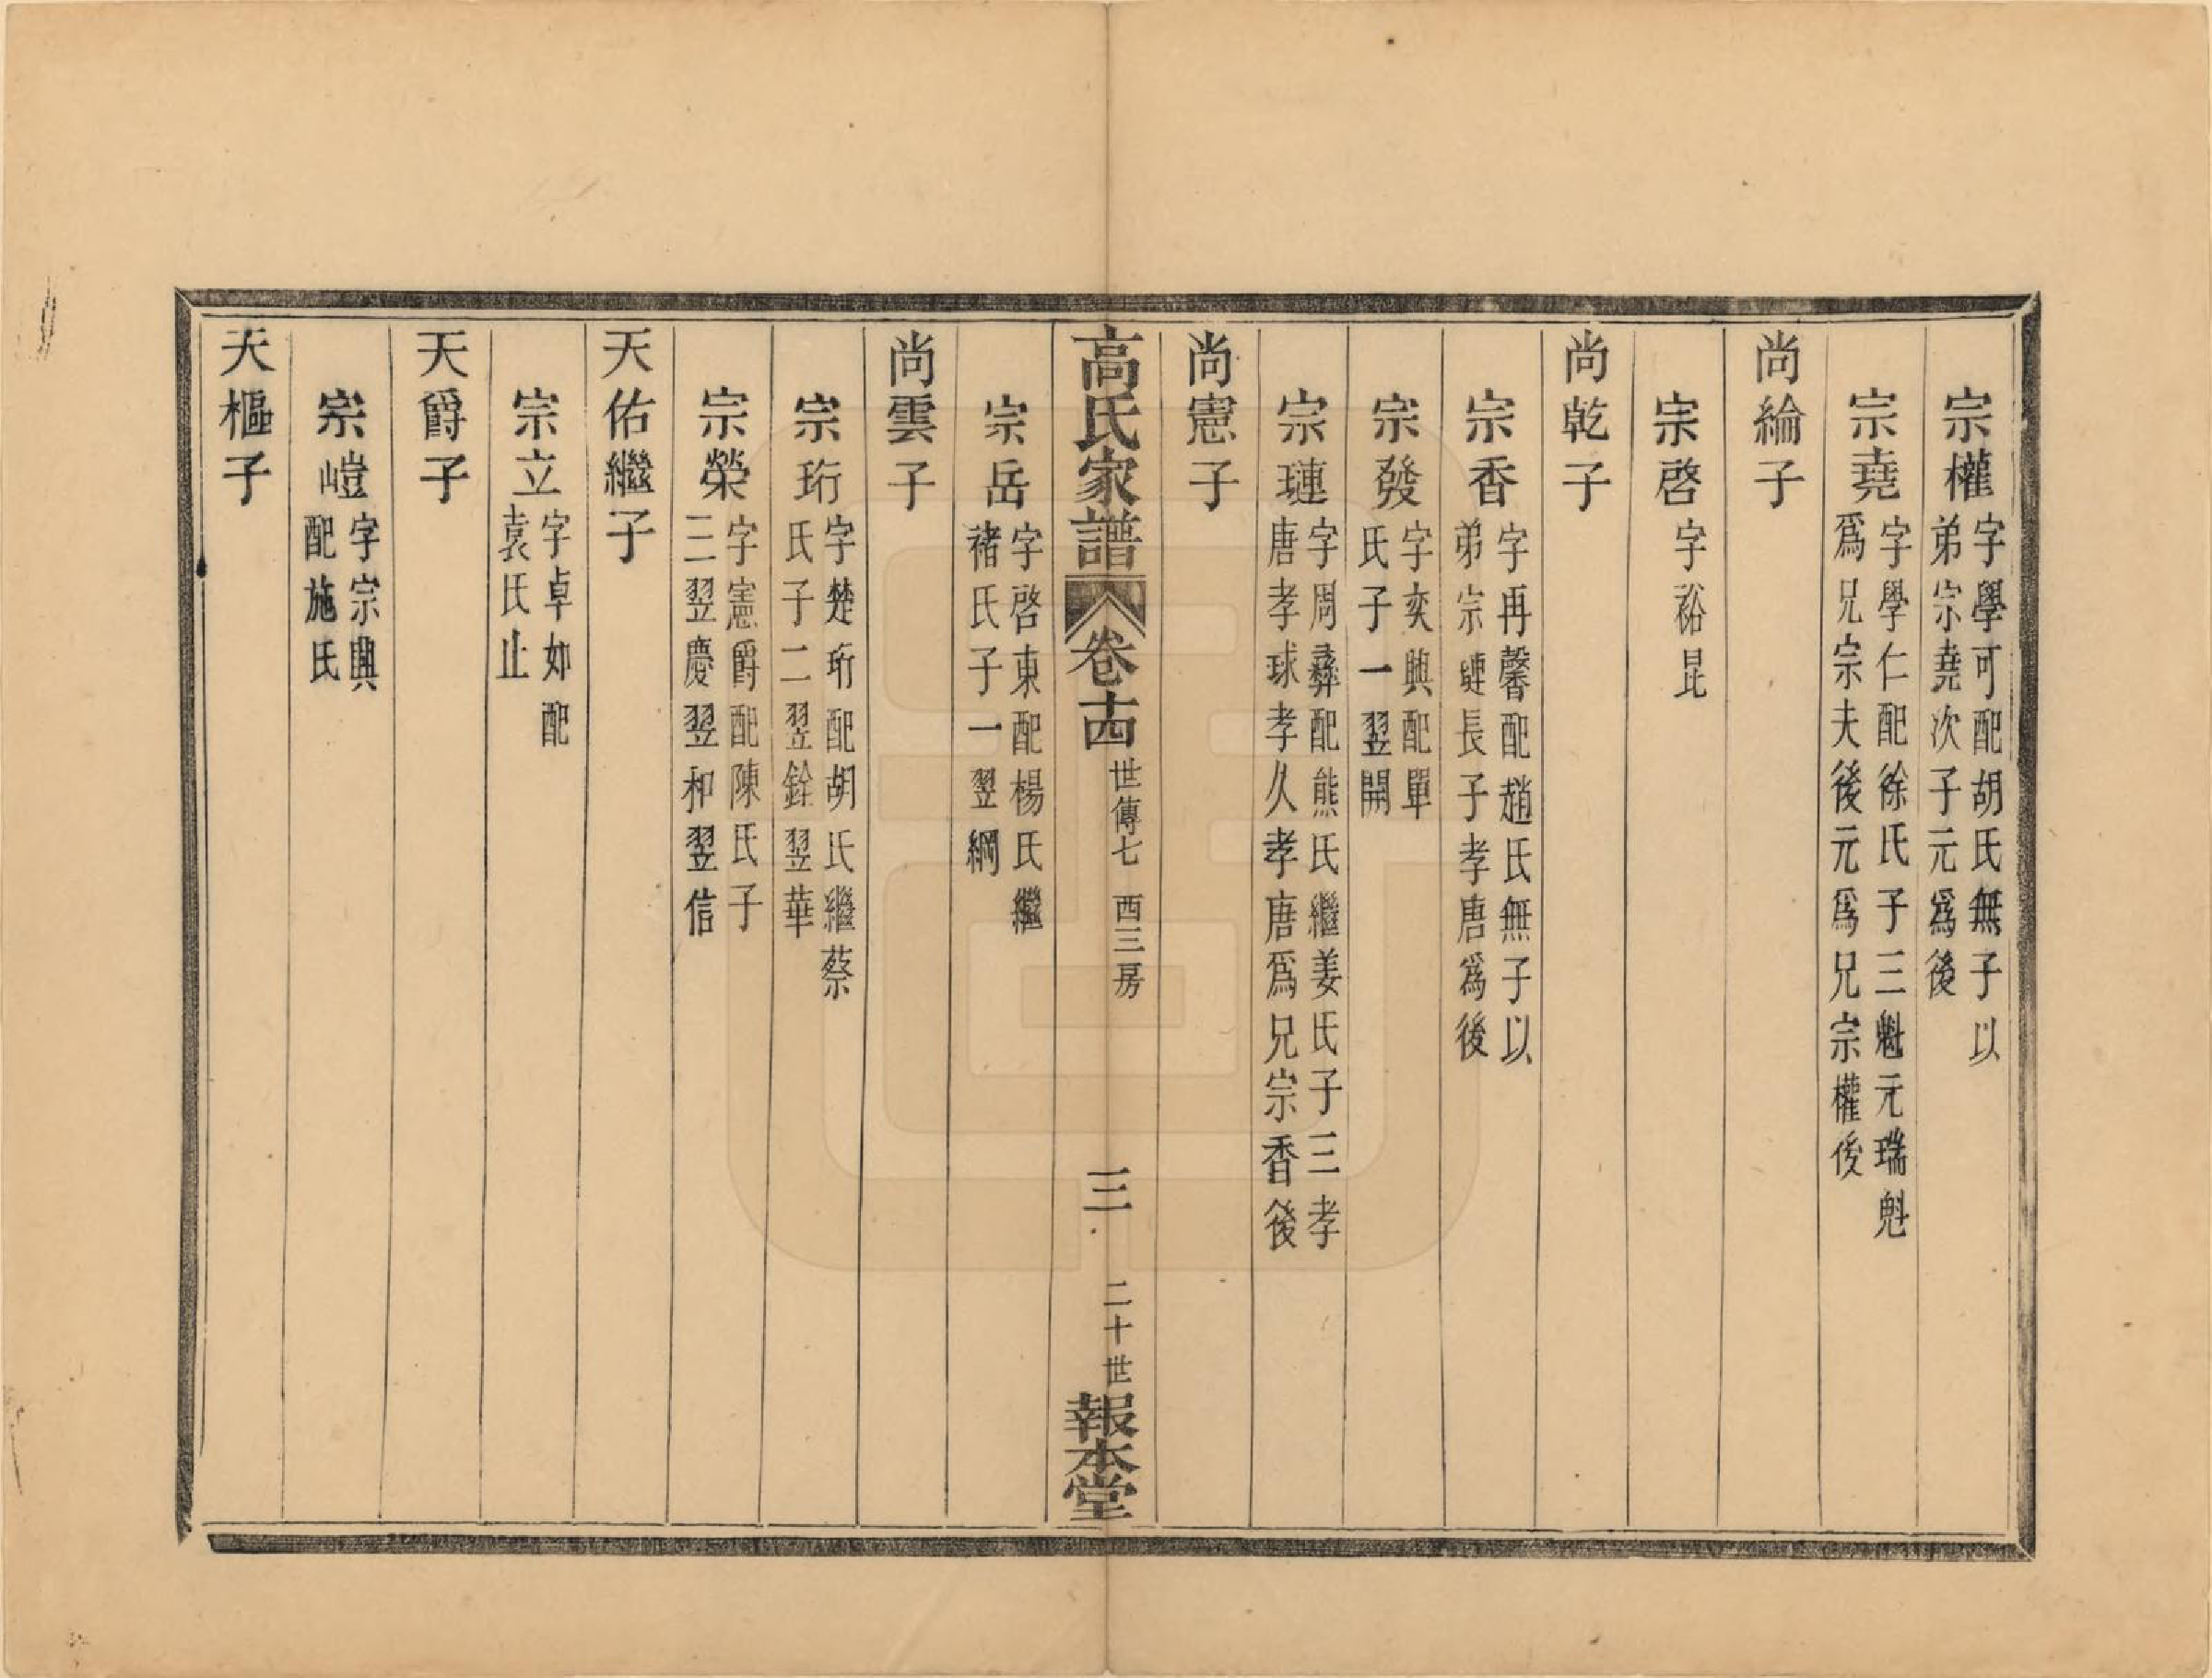 宗權 字學可配胡氏無子以
弟宗堯次子元爲後
宗堯 字學仁配徐氏子三魁元瑞魁
爲兄宗夫後元爲兄宗權後
尚綸子
宗啓 字裕昆
尚乾子
宗香 字再馨配趙氏無子以
弟宗璉長子孝唐爲後
宗發 字奕興配單
氏子一翌開
宗璉 字周彝配熊氏繼姜氏子三孝
唐孝球孝久孝唐爲兄宗香後
尚憲子
高氏家譜 卷十四 世傳七 西三房 三 二十世 報本堂
宗岳 字啓東配楊氏繼
褚氏子一翌綱
尚雲子
宗珩 字楚珩配胡氏繼蔡
氏子二翌銓翌華
宗榮 字憲爵配陳氏子
三翌慶翌和翌信
天佑繼子
宗立 字卓如配
袁氏止
天爵子
宗嵦 字宗興
配施氏
天樞子